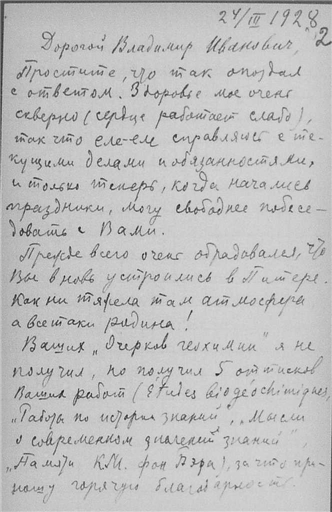 24/III 1928
2
Дорогой Владимир Иванович,
Простите, что так опоздал
с ответом. Здоровье мое очень
скверно (сердце работает слабо),
так что еле-еле справляюсь с те-
кущими делами и обязанностями,
и только теперь, когда начались
праздники, могу свободнее побесе-
довать с Вами.
Прежде всего очень обрадовался, что
Вы вновь устроились в Питере.
Как ни тяжела там атмосфера
а все таки родина!
Ваших „Очерков геохимии" я не
получил, но получил 5 оттисков
Ваших работ (Etudes biogéochimiques,
„Работы по истории знаний", „Мысли
о современном значении знаний",
„Памяти К.М. фон Бэра), за что при-
ношу горячую благодарность.